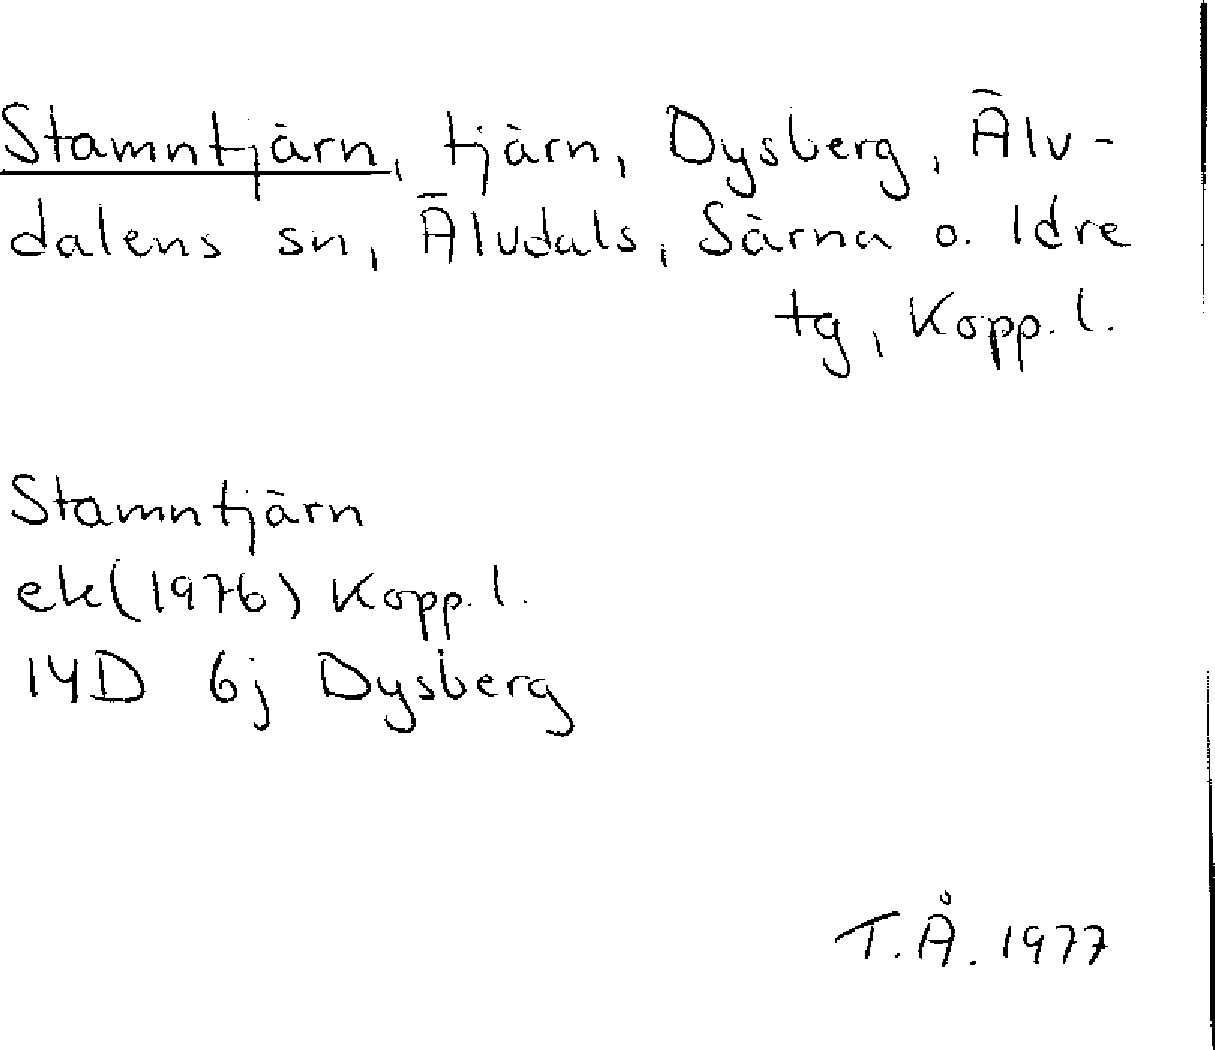 Stamntjärn, tjärn, Dysberg, Älv-
dalens sn, Älvdals, Särna o. Idre
tg, Kopp. l.
Stamntjärn
ek (1976) Kopp. l.
14D 6j Dysberg
T.Å. 1977